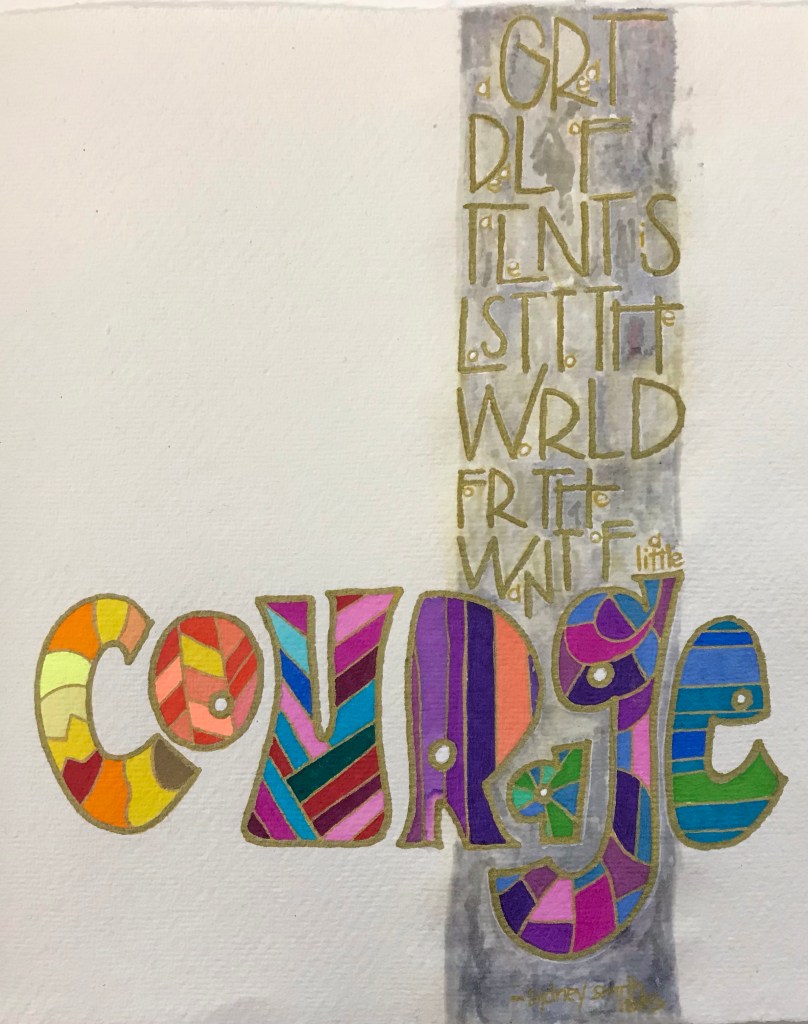 a GReaT
DeaL oF
TaLeNT iS
LoST To THe
WoRLD
FoR THe
WaNT oF a little
CoURage
~sydney smith